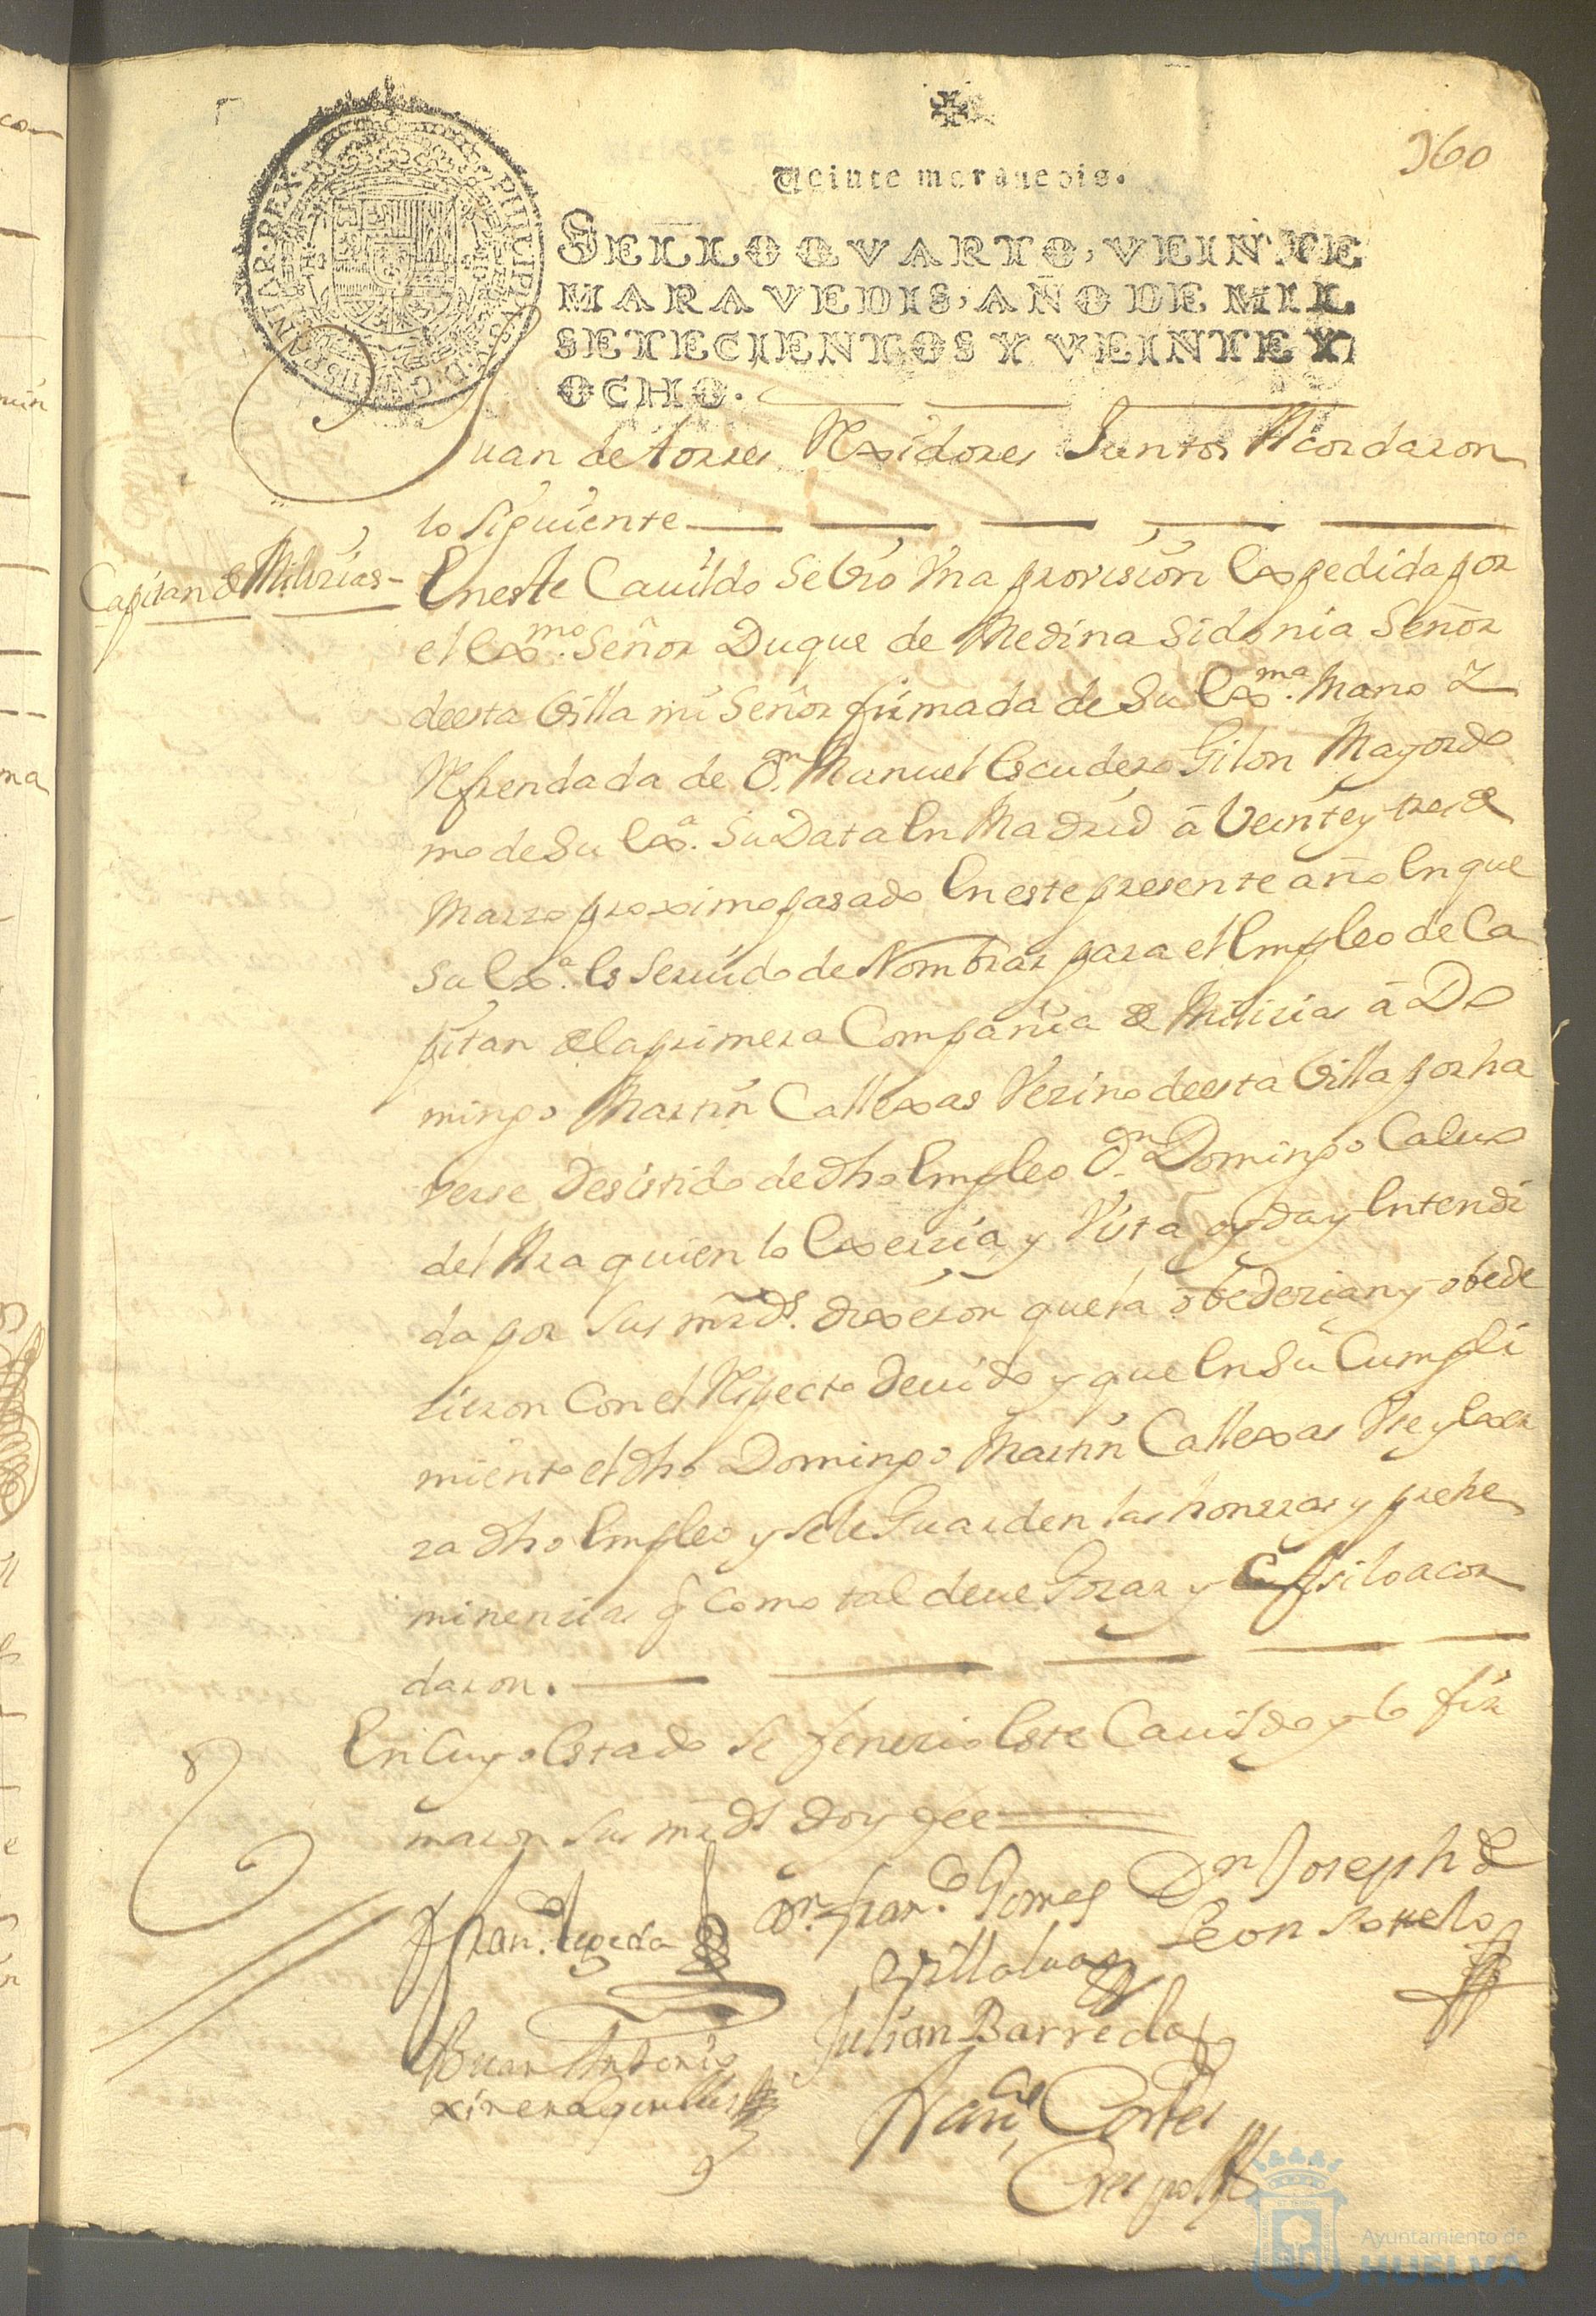 360
Veinte maravedis.
SELLO QVARTO, VEINTE
MARAVEDIS, AÑO DE MIL
SETECIENTOS Y VEINTE Y
OCHO.
Juan de torres Rexidores Juntos Acordaron
lo siguiente
Capitan de Milizias
En este Cauildo se bio Vna provision expedida por
el exmo. Señor Duque de Medina Sidonia Señor
de esta Villa mi Señor firmada de Su exma. Mano y
Refrendada de Dn. Manuel Escudero Gilon Mayordo
mo de Su exa. Su Data en Madrid â Veinte y tres de
Marzo proximo pasado en este presente año en que
su exa. es seruido de Nombrar para el empleo de Ca
pitan de la primera Compañia de Milizias â Do
mingo Martin Callexas Vezino de esta Villa por ha
verse desistido de dho empleo Dn. Domingo Caluo
del Ara quien lo exerzia, y Vista oyda y entendi
da por sus mrds. dixeron que la obedezian y obede
zieron Con el Respecto deuido y que en su Cumpli
miento el dho Domingo Martin Callexas Vse y exer
za dho empleo y se le Guarden las honrras y prehe
minenzias q̃ como tal deue Gozar y Assi lo acor
daron.
En Cuyo estado se fenezio este Cauildo y lo fir
maron sus mrds doy fee
Fran.co Zepeda
Dn. Fran.co Gomes
Villalua
Dn Joseph de
Leon Sotelo
Juan Antonio
Julian Barreda
Franco. Cortes
Crespo
Ayuntamiento de
HUELVA